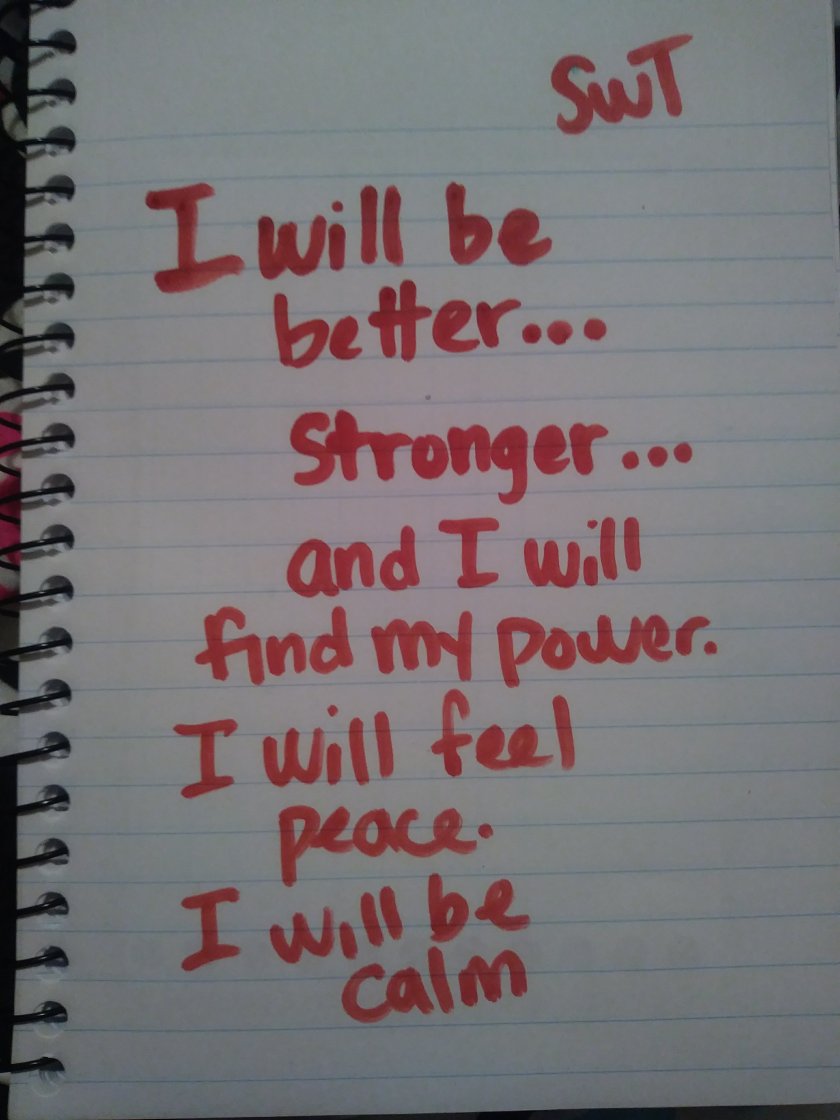 SWT
I will be
better...
Stronger...
and I will
find my power.
I will feel
peace.
I will be
calm